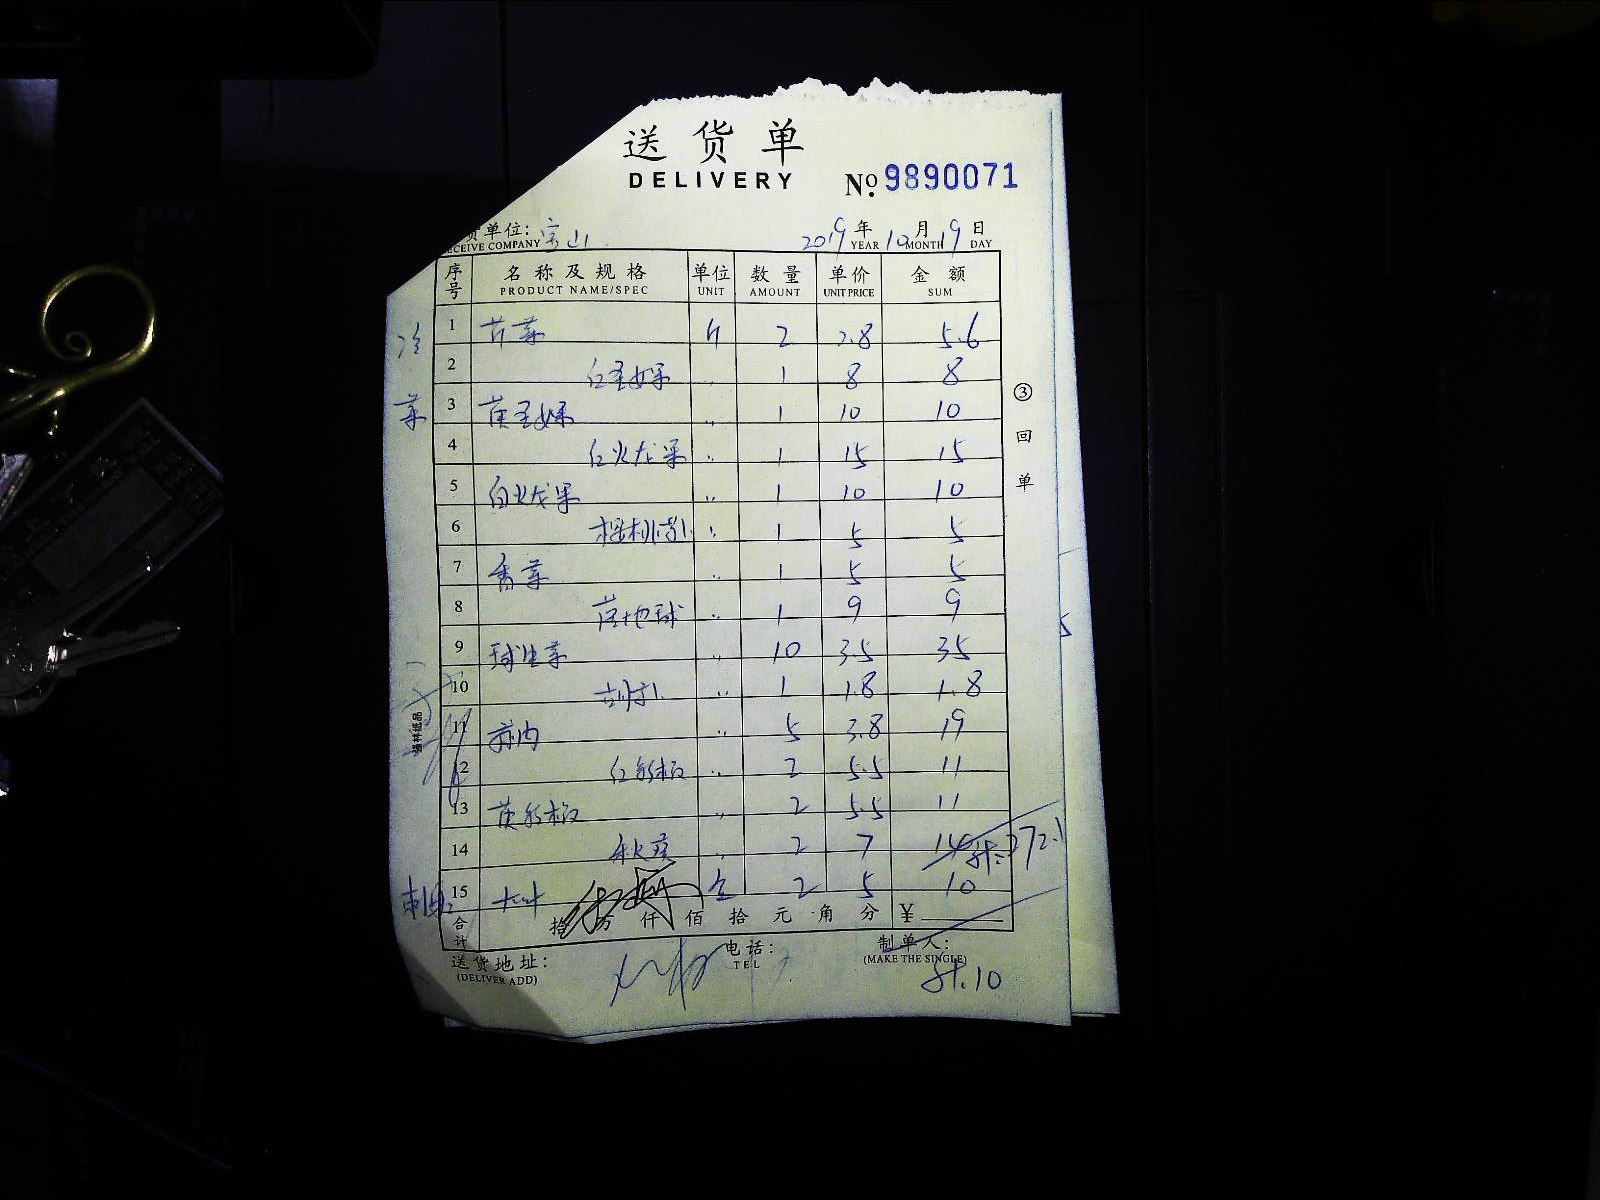 送货单
DELIVERY
№ 9890071
货单位: 宝山
2019 年 10 月 19 日
ECEIVE COMPANY YEAR MONTH DAY
序号 名称及规格 单位 数量 单价 金额
PRODUCT NAME/SPEC UNIT AMOUNT UNIT PRICE SUM
冷菜
1 芹菜 斤 2 2.8 5.6
2 红圣女果 〃 1 8 8
3 黄圣女果 〃 1 10 10
4 红火龙果 〃 1 15 15
5 白火龙果 〃 1 10 10
6 〃 1 5 5
7 香菜 〃 1 5 5
8 〃 1 9 9
9 球生菜 〃 10 3.5 35
10 〃 1 1.8 1.8
11 〃 5 3.8 19
12 红彩椒 〃 2 5.5 11
13 黄彩椒 〃 2 5.5 11
14 秋葵 〃 2 7 14 计: 272.1
15 2 5 10
合计 拾 万 仟 佰 拾 元 角 分 ¥
送货地址: 电话: 制单人:
(DELIVER ADD) TEL (MAKE THE SINGLE)
计.10
③回单
强林纸品